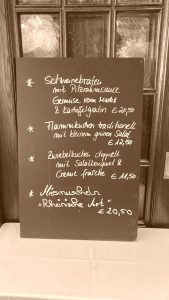 * Schweinebraten
mit Pilzrahmsauce
Gemüse vom Markt
& Kartoffelgratin € 20,50
* Flammkuchen traditionell
mit kleinem grünen Salat
€ 12,50
* Zwiebelkuchen doppelt
mit Salatbouquet &
Creme fraîche € 11,50
* Miesmuscheln
"Rheinische Art"
€ 20,50